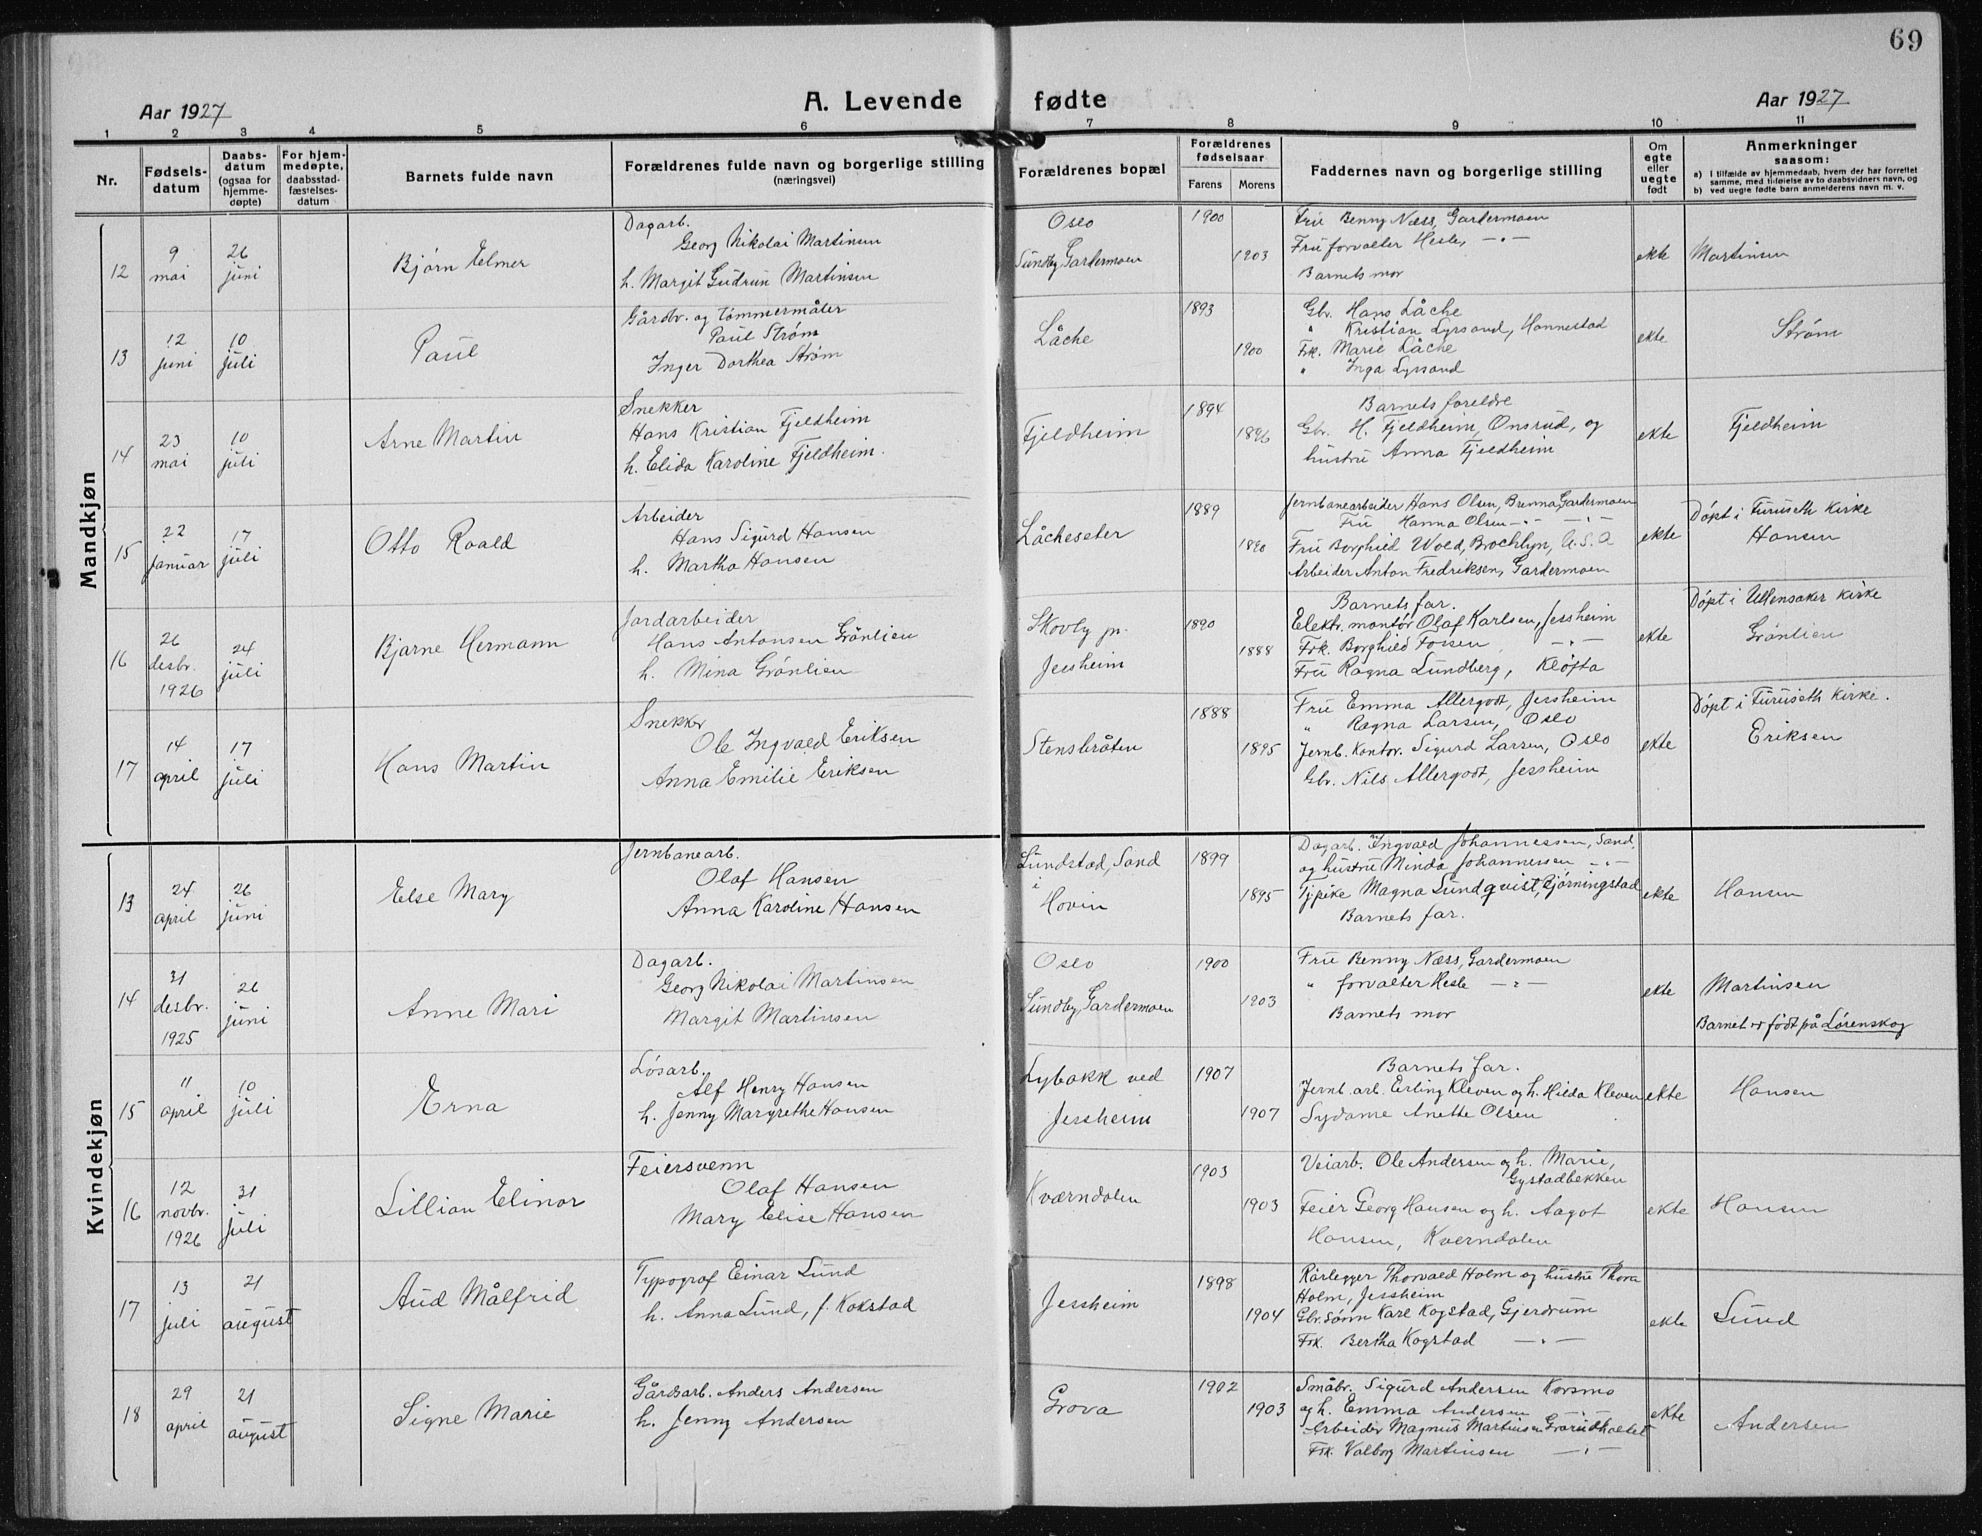 69
Aar 1927
A. Levende fødte
Aar 1927
1 2 3 4 5 6 7 8 9 10 11
Nr.
Fødsels-
datum
Daabs-
datum
(ogsaa for
hjemme-
døpte)
For hjem-
medøpte,
daabsstad-
fæstelses-
datum
Barnets fulde navn
Forældrenes fulde navn og borgerlige stilling
(næringsvei)
Forældrenes bopæl
Forældrenes
fødselsaar
Farens Morens
Faddernes navn og borgerlige stilling
Om
egte
eller
uegte
født
Anmerkninger
saasom:
a) I tilfælde av hjemmedaab, hvem der har forrettet
samme, med tilføielse av to daabsvidners navn, og
b) ved uegte fødte barn anmelderens navn m. v.
Mandkjøn
12
9
mai
26
juni
Bjørn Elmer
Dagarb.
Georg Nikolai Martinsen
h. Margit Gudrun Martinsen
Oslo
Sundby, Gardermoen
1900
1903
Fru Benny Næss, Gardermoen
Fru forvalter Hesle, —〃—
Barnets mor
ekte
Martinsen
13
12
juni
10
juli
Paul
Gårdbr. og tømmermåler
Paul Strøm
Inger Dorthea Strøm
Låche
1893
1900
Gbr. Hans Låche
〃 Kristian Lyrsand, Hannestad
Frk. Marie Låche
〃 Inga Lyrsand
ekte
Strøm
14
23
mai
10
juli
Arne Martin
Snekker
Hans Kristian Fjeldheim
h. Elida Karoline Fjeldheim.
Fjeldheim
1894
1896
Barnets foreldre
Gbr. H. Fjeldheim, Onsrud, og
hustru Anna Fjeldheim
ekte
Fjeldheim
15
22
januar
17
juli
Otto Roald
Arbeider
Hans Sigurd Hansen
h. Martha Hansen
Låcheseter
1889
1890
Jernbanearbeider Hans Olsen, Brenna, Gardermoen
Fru Hanna Olsen —〃— —〃—
Fru Borghild Wold, Brochlyn, U.S.A
Arbeider Anton Fredriksen, Gardermoen
ekte
Døpt i Furuseth kirke
Hansen
16
26
desbr.
1926
24
juli
Bjarne Hermann
Jordarbeider
Hans Antonsen Grönlien
h. Mina Grönlien
Skovly pr.
Jessheim
1890
1888
Barnets far.
Elektr. montør Olaf Karlsen, Jessheim
Frk. Borghild Fossen —〃—
Fru Ragna Lundberg, Kløfta
ekte
Døpt i Ullensaker kirke
Grönlien
17
14
april
17
juli
Hans Martin
Snekker
Ole Ingvald Eriksen
Anna Emilie Eriksen
Stensbråten
1888
1895
Fru Emma Allergodt, Jessheim
〃 Ragna Larsen, Oslo
Jernb. kontor. Sigurd Larsen, Oslo
Gbr. Nils Allergodt, Jessheim
ekte
Døpt i Furuseth kirke.
Eriksen
Kvindekjøn
13
24
april
26
juni
Else Mary
Jernbanearb.
Olaf Hansen
Anna Karoline Hansen
Lundstad, Sand
i
Hovin
1899
1895
Dagarb. Ingvald Johannessen, Sand,
og hustru Minda Johannessen —〃—
Tjpike Magna Lundqvist, Bjørningstad
Barnets far.
ekte
Hansen
14
31
desbr.
1925
26
juni
Anne Mari
Dagarb.
Georg Nikolai Martinsen
Margit Martinsen
Oslo
Sundby, Gardermoen
1900
1903
Fru Benny Næss, Gardermoen
〃 forvalter Hesle —〃—
Barnets mor
ekte
Martinsen
Barnet er født på Lørenskog
15
11
april
10
juli
Erna
Løsarb.
Alf Henry Hansen
h. Jenny Margrethe Hansen
Lybakk ved
Jessheim
1907
1907
Barnets far.
Jernb. arb. Erling Kleven og h. Hilda Kleven
Sydame Anette Olsen
ekte
Hansen
16
12
novbr.
1926
31
juli
Lillian Elinor
Feiersvenn
Olaf Hansen
Mary Elise Hansen
Kværndalen
1903
1903
Veiarb. Ole Andersen og h. Marie,
Gystadbekken
Feier Georg Hansen og h. Aagot
Hansen, Kverndalen
ekte
Hansen
17
13
juli
21
august
Aud Målfrid
Typograf Einar Lund
h. Anna Lund, f. Kokstad
Jessheim
1898
1904
Rørlegger Thorvald Holm og hustru Thora
Holm, Jessheim
Gbr. sønn Karl Kogstad, Gjerdrum
Frk. Bertha Kogstad —〃—
ekte
Lund
18
29
april
21
august
Signe Marie
Gårdsarb. Anders Andersen
h. Jenny Andersen
Grova
1902
1903
Småbr. Sigurd Andersen Korsmo
og h. Emma Andersen —〃—
Arbeider Magnus Martinsen Grorudholtet
Frk. Valborg Martinsen —〃—
ekte
Andersen